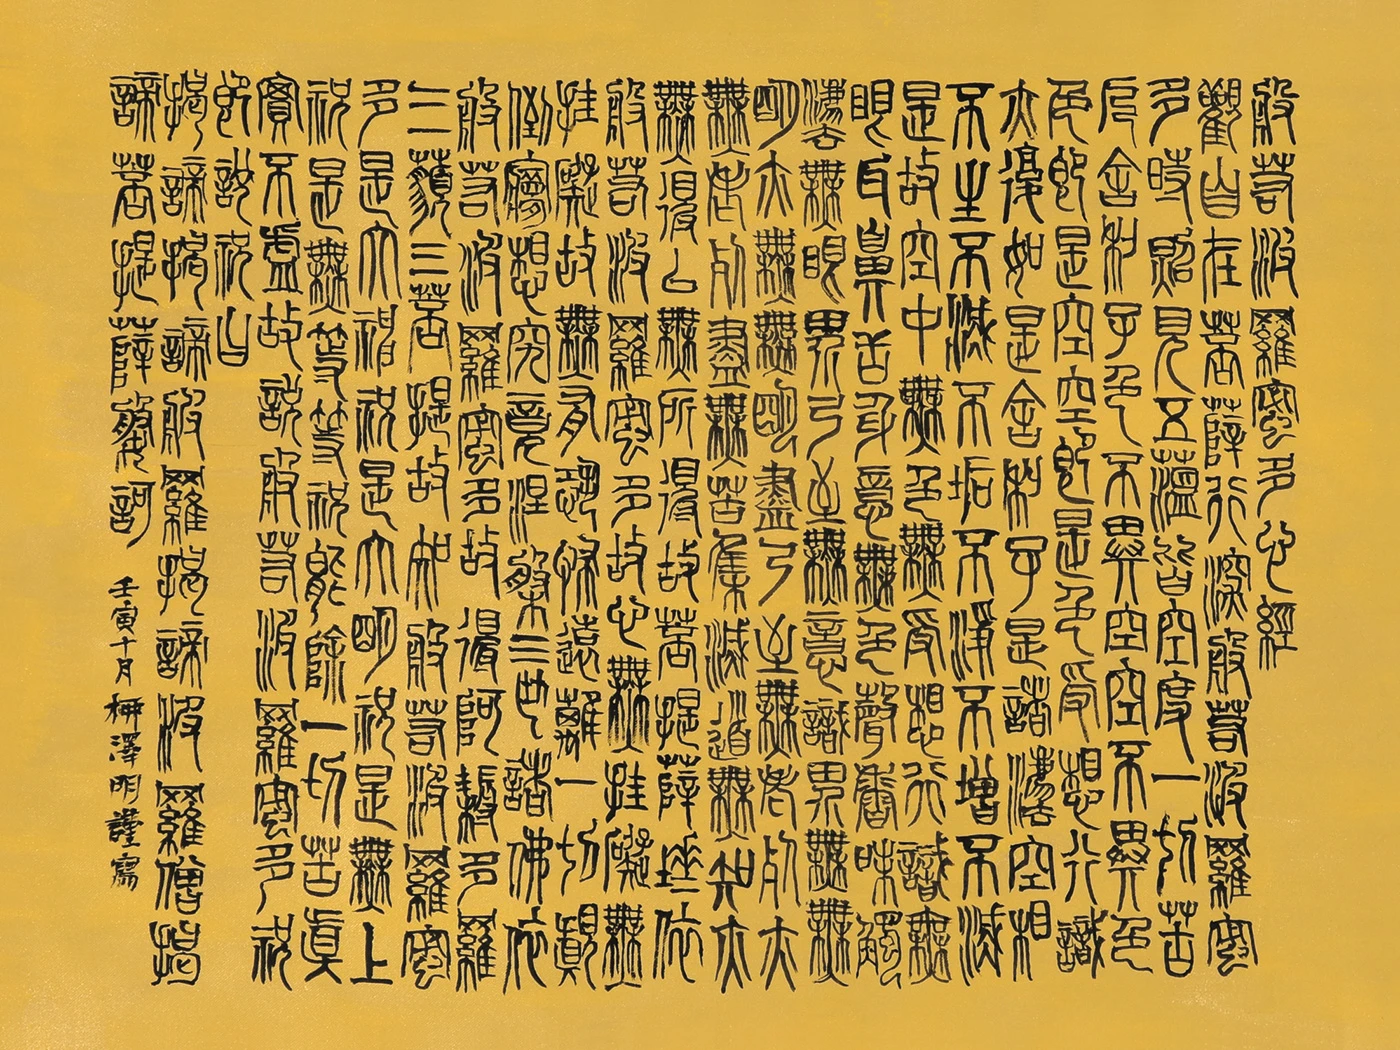 般若波羅蜜多心經
觀自在菩薩行深般若波羅蜜
多時照見五蘊皆空度一切苦
厄舍利子色不異空空不異色
色即是空空即是色受想行識
亦復如是舍利子是諸法空相
不生不滅不垢不淨不增不減
是故空中無色無受想行識無
眼耳鼻舌身意無色聲香味觸
法無眼界乃至無意識界無無
明亦無無明盡乃至無老死亦
無老死盡無苦集滅道無智亦
無得以無所得故菩提薩埵依
般若波羅蜜多故心無罣礙無
罣礙故無有恐怖遠離一切顛
倒夢想究竟涅槃三世諸佛依
般若波羅蜜多故得阿耨多羅
三藐三菩提故知般若波羅蜜
多是大神祝是大明祝是無上
祝是無等等祝能除一切苦真
實不虛故說般若波羅蜜多祝
即說祝曰
揭諦揭諦般羅揭諦波羅僧揭
諦菩提薩婆訶
壬寅十月 澤明謹寫